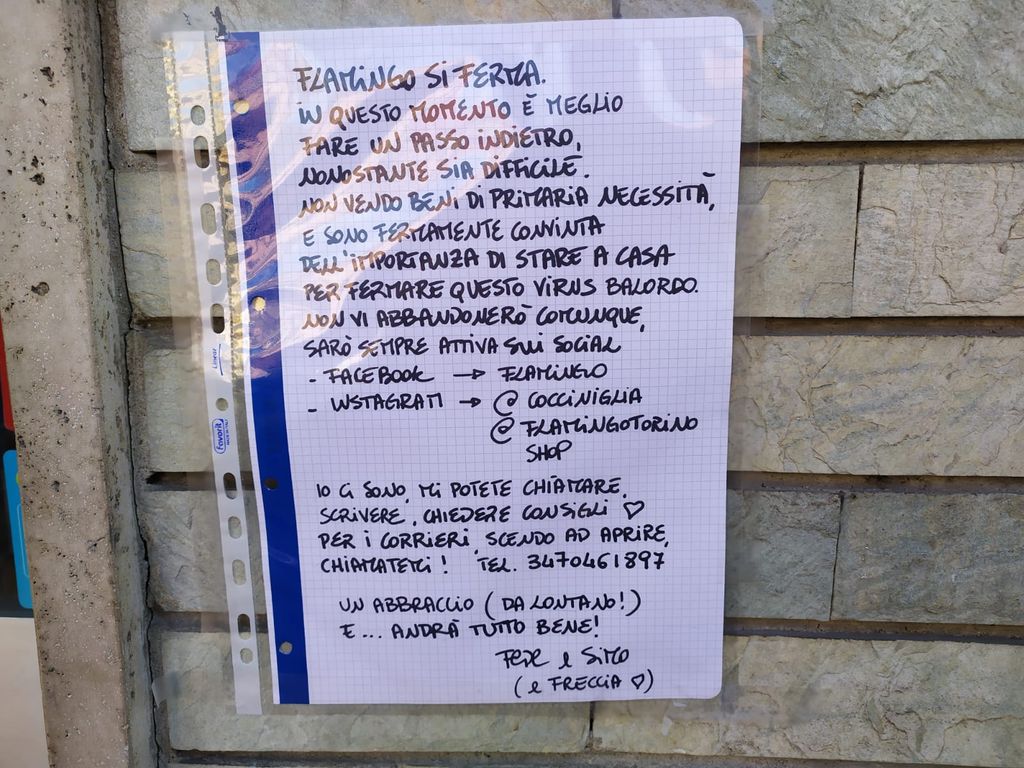 FLAMINGO SI FERMA.
IN QUESTO MOMENTO È MEGLIO
FARE UN PASSO INDIETRO,
NONOSTANTE SIA DIFFICILE.
NON VENDO BENI DI PRIMARIA NECESSITÀ,
E SONO FERMAMENTE CONVINTA
DELL'IMPORTANZA DI STARE A CASA
PER FERMARE QUESTO VIRUS BALORDO.
NON VI ABBANDONERÒ COMUNQUE,
SARÒ SEMPRE ATTIVA SUI SOCIAL
- FACEBOOK → FLAMINGO
- INSTAGRAM → @ COCCINIGLIA
@ FLAMINGOTORINO
SHOP
IO CI SONO, MI POTETE CHIAMARE,
SCRIVERE, CHIEDERE CONSIGLI ♡
PER I CORRIERI, SCENDO AD APRIRE,
CHIAMATEMI! TEL. 3470461897
UN ABBRACCIO (DA LONTANO!)
E... ANDRÀ TUTTO BENE!
FEDE e SIMO
(e FRECCIA ♡)
Linear
Favorit
MADE IN ITALY